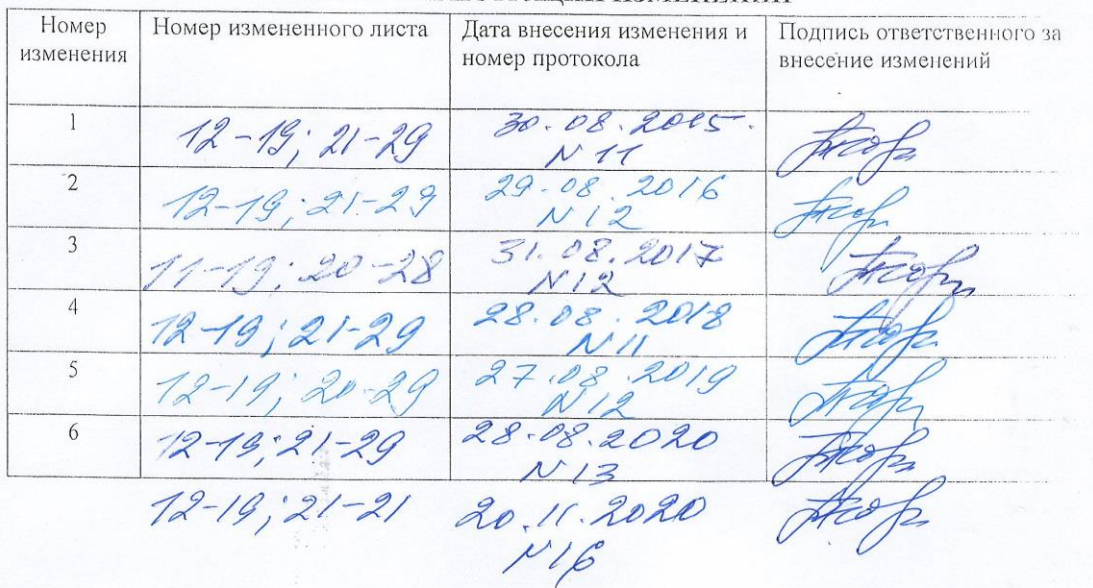 Номер изменения | Номер измененного листа | Дата внесения изменения и номер протокола | Подпись ответственного за внесение изменений
1 | 12-19; 21-29 | 30.08.2015. N 11
2 | 12-19; 21-29 | 29.08.2016 N 12
3 | 11-19; 20-28 | 31.08.2017 N 12
4 | 12-19; 21-29 | 28.08.2018 N 11
5 | 12-19; 20-29 | 27.08.2019 N 12
6 | 12-19; 21-29 | 28.08.2020 N 13
12-19; 21-21 | 20.11.2020 N 16